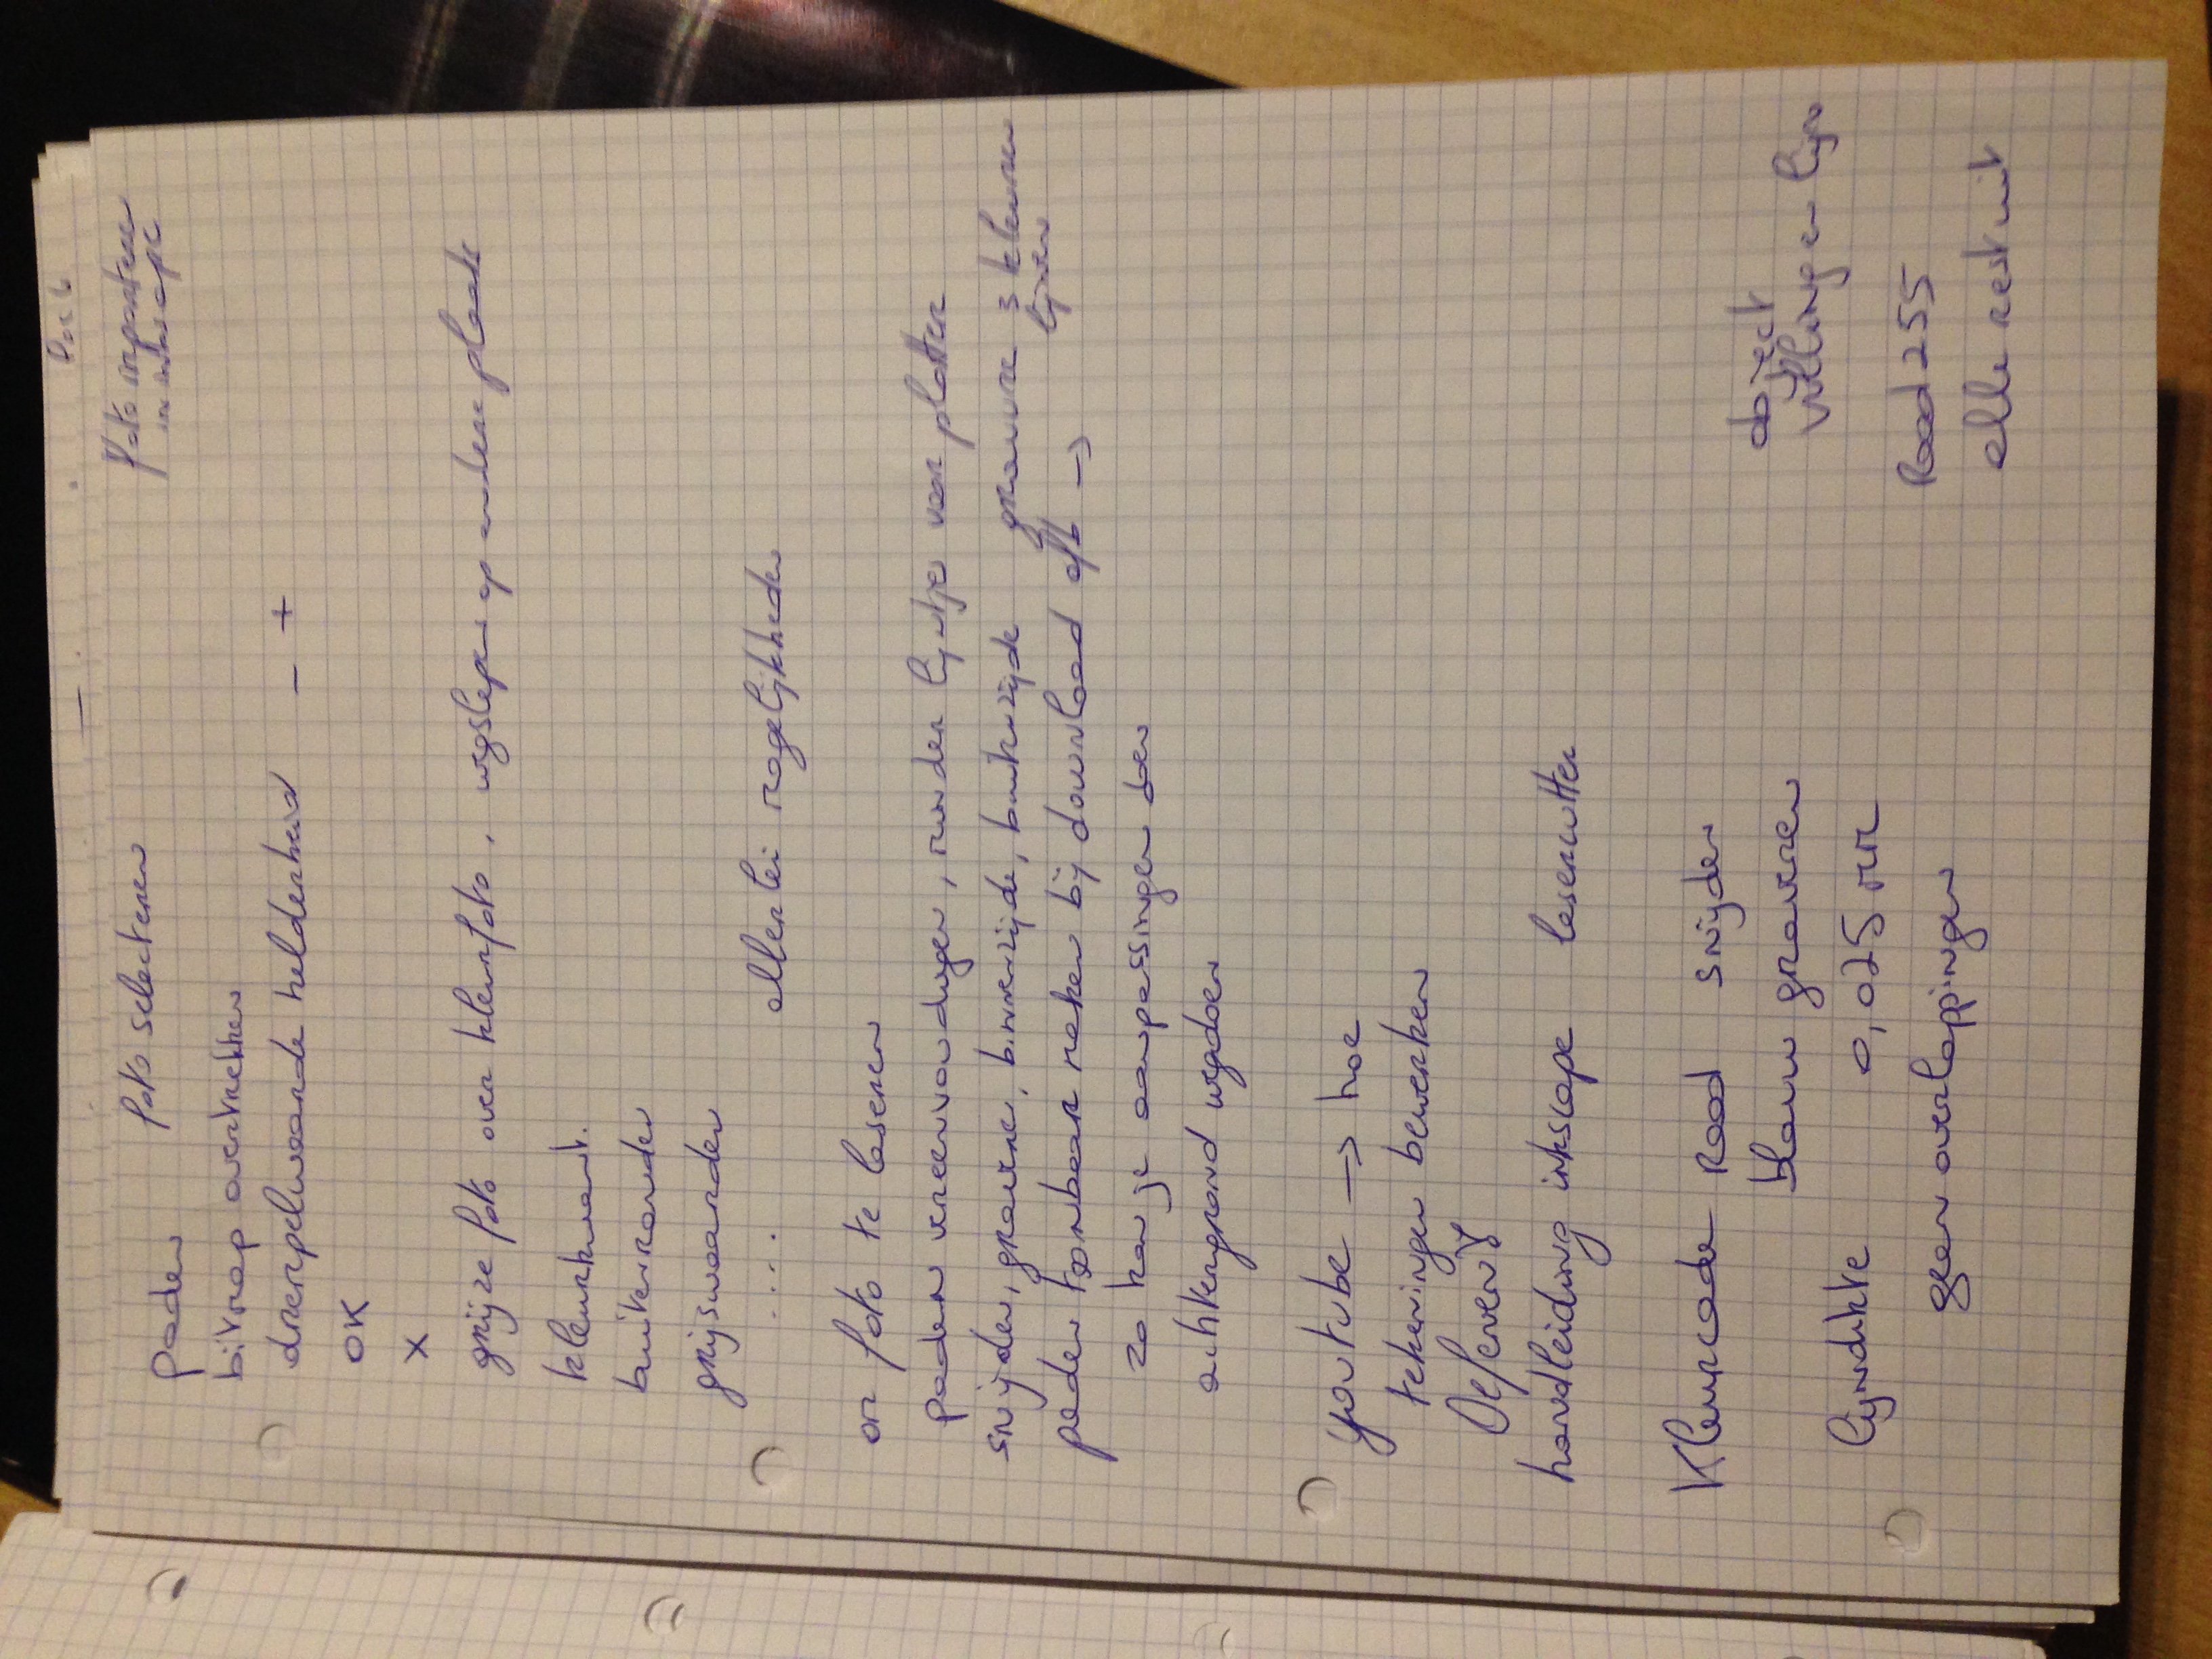 foto selecteren
foto importeren
in inkscape
paden
bitmap overtrekken
drempelwaarde helderheid - +
OK
X
grijze foto over kleurfoto, wegslepen op andere plaats
kleurkwant.
buitenranden
grijswaarden
.... allerlei mogelijkheden
om foto te laseren
paden vereenvoudigen, minder lijntjes voor plotter
snijden, graveren, binnenzijde, buitenzijde gravure 3 kleuren
lijnen
paden toonbaar maken bij download afb →
zo kan je aanpassingen doen
achtergrond wegdoen
youtube → hoe
tekeningen bewerken
Oefenen
handleiding inkscape lasercutter
Kleurcode Rood snijden
blauw graveren
object
vulling en lijn
lijndikte 0,025 mm
Rood 255
geen overlappingen
alle rest uit